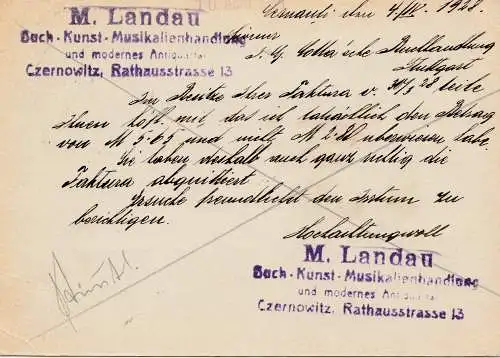 M. Landau
Buch-Kunst-Musikalienhandlung
und modernes Antiquariat
Czernowitz, Rathausstrasse 13
Cernauti den 4/IV. 1928.
J. G. Cotta'sche Buchhandlung
Stuttgart
Im Besitze Ihrer Faktura v. 30/3 28 teile
Ihnen höfl. mit, das ich tatsächlich den Betrag
von M 5.65 und nicht M 2.80 überwiesen habe.
Sie haben deshalb auch ganz richtig die
Faktura abquittiert
Ersuche freundlichst den Irrtum zu
berichtigen.
Hochachtungsvoll
M. Landau
Buch-Kunst-Musikalienhandlung
und modernes Antiquariat
Czernowitz, Rathausstrasse 13